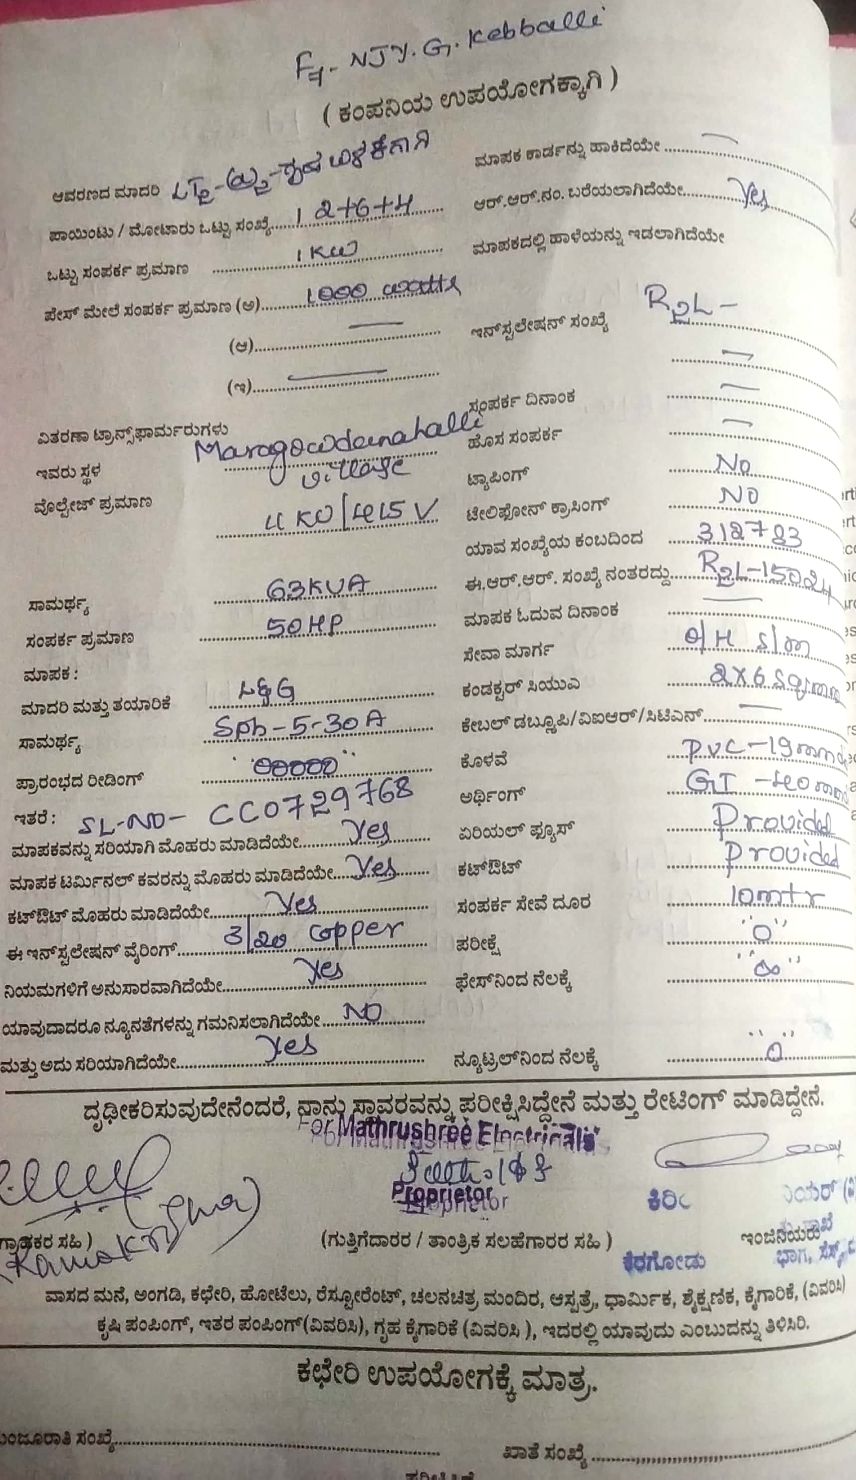 F4- NJY. G. Kebballi
( ಕಂಪನಿಯ ಉಪಯೋಗಕ್ಕಾಗಿ )
ಆವರಣದ ಮಾದರಿ LT2-
ಮಾಪಕ ಕಾರ್ಡನ್ನು ಹಾಕಿದೆಯೇ
ಪಾಯಿಂಟು / ಮೋಟಾರು ಒಟ್ಟು ಸಂಖ್ಯೆ 2+6+4
ಆರ್.ಆರ್.ನಂ. ಬರೆಯಲಾಗಿದೆಯೇ Yes
ಒಟ್ಟು ಸಂಪರ್ಕ ಪ್ರಮಾಣ 1 KW
ಮಾಪಕದಲ್ಲಿ ಹಾಳೆಯನ್ನು ಇಡಲಾಗಿದೆಯೇ
ಪೇಸ್ ಮೇಲೆ ಸಂಪರ್ಕ ಪ್ರಮಾಣ (ಅ) 1000 watts
(ಆ)
ಇನ್‌ಸ್ಟಲೇಷನ್ ಸಂಖ್ಯೆ R2L -
(ಇ)
ಸಂಪರ್ಕ ದಿನಾಂಕ
ವಿತರಣಾ ಟ್ರಾನ್ಸ್‌ಫಾರ್ಮರುಗಳು
ಹೊಸ ಸಂಪರ್ಕ
ಇವರು ಸ್ಥಳ Maragowdanahalli village
ಟ್ಯಾಪಿಂಗ್ No
ವೊಲ್ಟೇಜ್ ಪ್ರಮಾಣ 11 KV/415 V
ಟೇಲಿಫೋನ್ ಕ್ರಾಸಿಂಗ್ NO
ಯಾವ ಸಂಖ್ಯೆಯ ಕಂಬದಿಂದ 312783
ಸಾಮರ್ಥ್ಯ 63KVA
ಈ.ಆರ್.ಆರ್. ಸಂಖ್ಯೆ ನಂತರದ್ದು R2L-15024
ಸಂಪರ್ಕ ಪ್ರಮಾಣ 50HP
ಮಾಪಕ ಓದುವ ದಿನಾಂಕ
ಮಾಪಕ :
ಸೇವಾ ಮಾರ್ಗ O/H S/m
ಮಾದರಿ ಮತ್ತು ತಯಾರಿಕೆ L&G
ಕಂಡಕ್ಟರ್ ಸಿಯುವಿ 2x6 Sqmm
ಸಾಮರ್ಥ್ಯ Sph-5-30A
ಕೇಬಲ್ ಡಬ್ಲೂಪಿ/ವಿಐಆರ್/ಸಿಟಿಎನ್
ಪ್ರಾರಂಭದ ರೀಡಿಂಗ್ "00000"
ಕೊಳವೆ PVC-19mm
ಇತರೆ : SL-NO- CC0729768
ಅರ್ಥಿಂಗ್ GI -40mm
ಮಾಪಕವನ್ನು ಸರಿಯಾಗಿ ಮೊಹರು ಮಾಡಿದೆಯೇ Yes
ಏರಿಯಲ್ ಫ್ಯೂಸ್ Provided
ಮಾಪಕ ಟರ್ಮಿನಲ್ ಕವರನ್ನು ಮೊಹರು ಮಾಡಿದೆಯೇ Yes
ಕಟ್‌ಔಟ್ Provided
ಕಟ್‌ಔಟ್ ಮೊಹರು ಮಾಡಿದೆಯೇ Yes
ಸಂಪರ್ಕ ಸೇವೆ ದೂರ 10mtr
ಈ ಇನ್‌ಸ್ಟಲೇಷನ್ ವೈರಿಂಗ್ 3/20 Copper
ಪರೀಕ್ಷೆ "0"
ನಿಯಮಗಳಿಗೆ ಅನುಸಾರವಾಗಿದೆಯೇ Yes
ಫೇಸ್‌ನಿಂದ ನೆಲಕ್ಕೆ "∞"
ಯಾವುದಾದರೂ ನ್ಯೂನತೆಗಳನ್ನು ಗಮನಿಸಲಾಗಿದೆಯೇ NO
ಮತ್ತು ಅದು ಸರಿಯಾಗಿದೆಯೇ Yes
ನ್ಯೂಟ್ರಲ್‌ನಿಂದ ನೆಲಕ್ಕೆ "0"
ದೃಢೀಕರಿಸುವುದೇನೆಂದರೆ, ನಾನು ಸ್ಥಾವರವನ್ನು ಪರೀಕ್ಷಿಸಿದ್ದೇನೆ ಮತ್ತು ರೇಟಿಂಗ್ ಮಾಡಿದ್ದೇನೆ.
For Mathrushree Electricals
Proprietor
ಗ್ರಾಹಕರ ಸಹಿ )
(ಗುತ್ತಿಗೆದಾರರ / ತಾಂತ್ರಿಕ ಸಲಹೆಗಾರರ ಸಹಿ )
ಇಂಜಿನಿಯರು
ಕೆರಗೋಡು
ವಾಸದ ಮನೆ, ಅಂಗಡಿ, ಕಛೇರಿ, ಹೋಟೆಲು, ರೆಸ್ಟೋರೆಂಟ್, ಚಲನಚಿತ್ರ ಮಂದಿರ, ಆಸ್ಪತ್ರೆ, ಧಾರ್ಮಿಕ, ಶೈಕ್ಷಣಿಕ, ಕೈಗಾರಿಕೆ, (ವಿವರಿಸಿ)
ಕೃಷಿ ಪಂಪಿಂಗ್, ಇತರ ಪಂಪಿಂಗ್(ವಿವರಿಸಿ), ಗೃಹ ಕೈಗಾರಿಕೆ (ವಿವರಿಸಿ ), ಇದರಲ್ಲಿ ಯಾವುದು ಎಂಬುದನ್ನು ತಿಳಿಸಿರಿ.
ಕಛೇರಿ ಉಪಯೋಗಕ್ಕೆ ಮಾತ್ರ.
ಮಂಜೂರಾತಿ ಸಂಖ್ಯೆ
ಖಾತೆ ಸಂಖ್ಯೆ